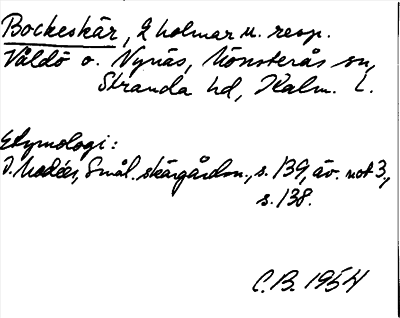 Bockeskär, 2 holmar u. resp.
Våldö o. Vynäs, Mönsterås sn,
Stranda hd, Kalm. l.
Etymologi:
J. Modéer, Smål. skärgårdsn., s. 139, äv. not 3,
s. 138.
C.B. 1954